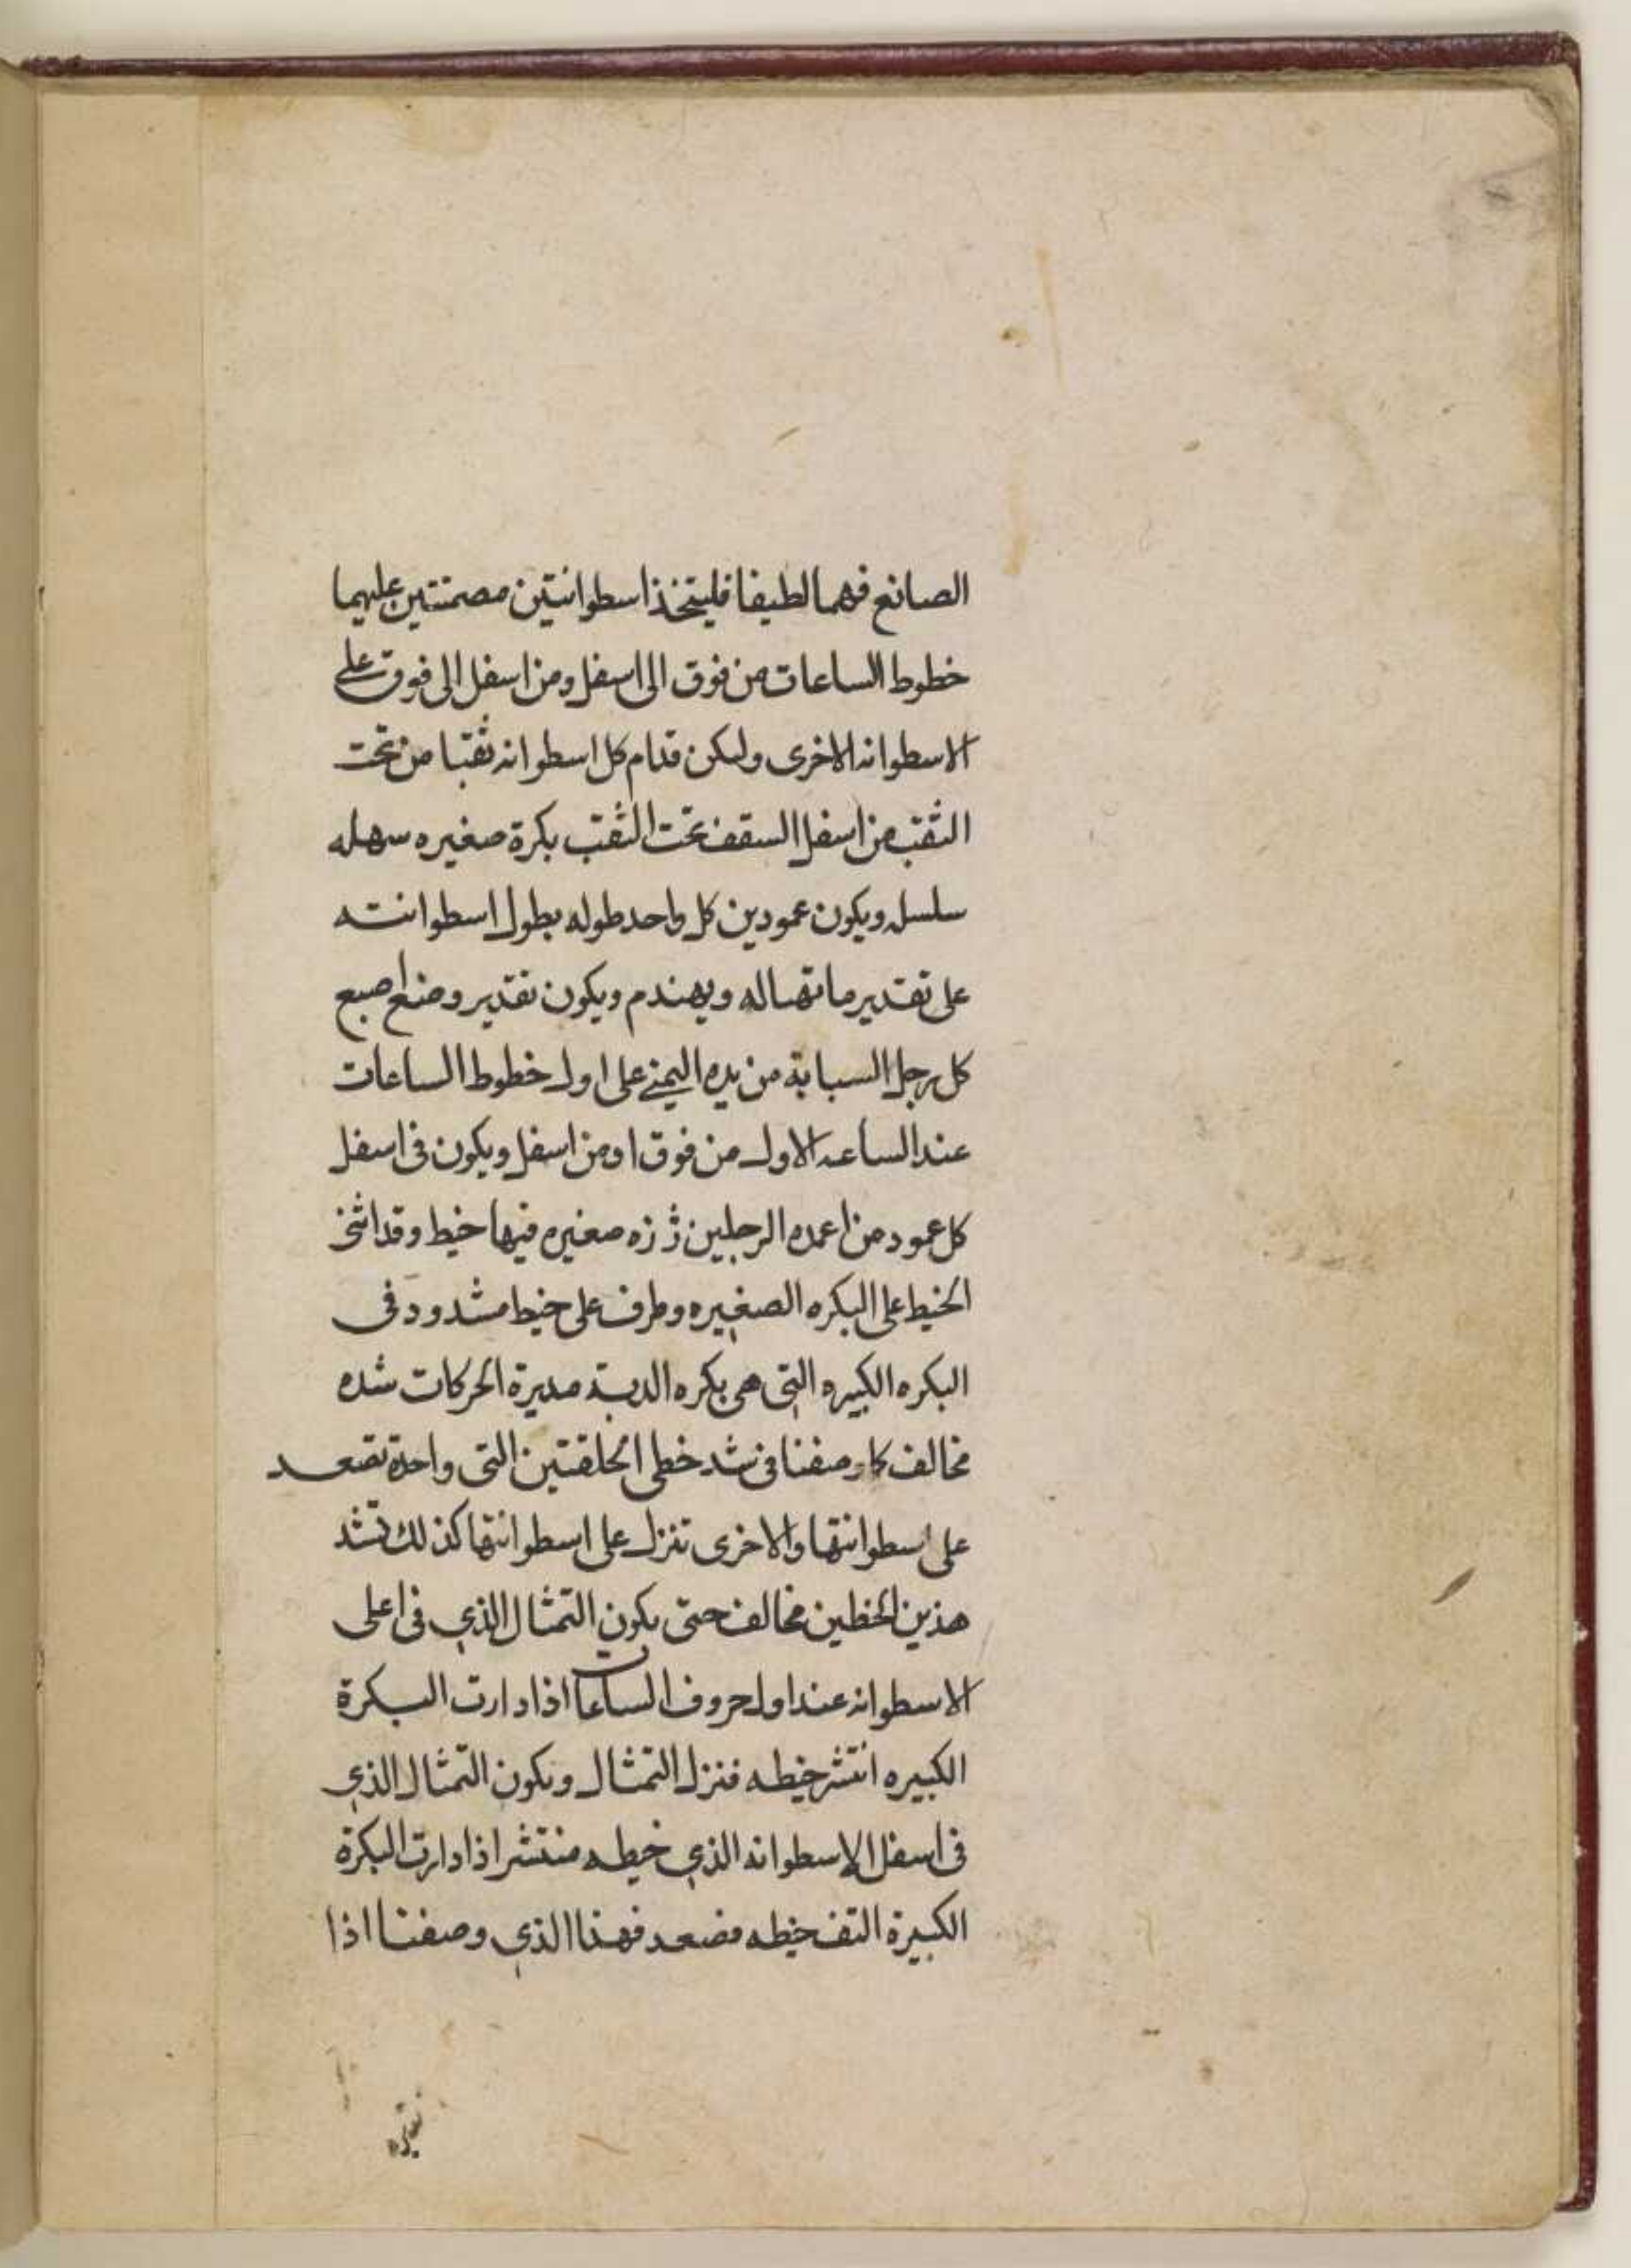 الصانع فهما لطيفا فليتخذ اسطوانتين مصمتتين عليهما
خطوط الساعات من فوق الى اسفل ومن اسفل الى فوق على
الاسطوانه الاخرى وليكن قدام كل اسطوانه ثقبا من تحت
الثقب من اسفل السقف تحت الثقب بكرة صغيره سهله
سلسله ويكون عمودين كل واحد طوله بطول اسطوانته
على تقدير ما تهيا له ويهندم ويكون تقدير وضع اصبع
كل رجل السبابة من يده اليمنى على اول خطوط الساعات
عند الساعه الاول من فوق او من اسفل ويكون فى اسفل
كل عمود من اعمده الرجلين زرزه صغيره فيها خيط وقد
الخيط على البكره الصغيره وطرف على خيط مشدود فى
البكره الكبيره التى هى بكره الدبة مديرة الحركات شده
مخالف كما وصفنا فى شد خطى الحلقتين التى واحدة تصعد
على اسطوانتها والاخرى تنزل على اسطوانتها كذلك تشد
هذين الخطين مخالف حتى يكون التمثال الذي فى اعلى
الاسطوانه عند اول حروف الساعات اذا دارت البكرة
الكبيره انتشر خيطه فنزل التمثال ويكون التمثال الذي
فى اسفل الاسطوانه الذي خيطه منتشر اذا دارت البكرة
الكبيرة التف خيطه فصعد فهذا الذي وصفنا اذا